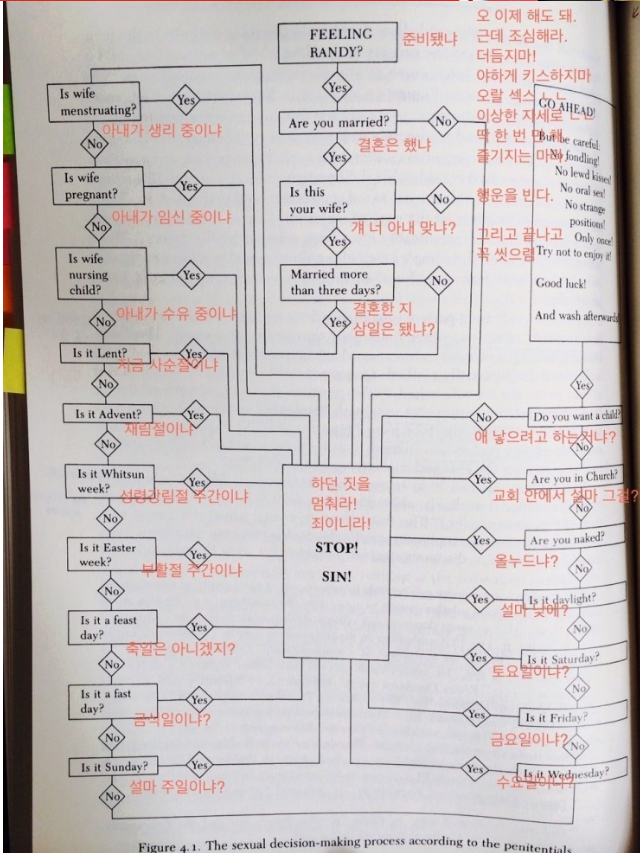 FEELING
RANDY?
준비됐냐
Yes
Are you married?
No
결혼은 했냐
Yes
Is this
your wife?
No
걔 너 아내 맞냐?
Yes
Married more
than three days?
No
결혼한 지
삼일은 됐냐?
Yes
Is wife
menstruating?
Yes
아내가 생리 중이냐
No
Is wife
pregnant?
Yes
아내가 임신 중이냐
No
Is wife
nursing
child?
Yes
아내가 수유 중이냐
No
Is it Lent?
Yes
지금 사순절이냐
No
Is it Advent?
Yes
재림절이냐
No
Is it Whitsun
week?
Yes
성령강림절 주간이냐
No
Is it Easter
week?
Yes
부활절 주간이냐
No
Is it a feast
day?
Yes
축일은 아니겠지?
No
Is it a fast
day?
Yes
금식일이냐?
No
Is it Sunday?
Yes
설마 주일이냐?
No
Is it Wednesday?
Yes
수요일이냐?
No
Is it Friday?
Yes
금요일이냐?
No
Is it Saturday?
Yes
토요일이냐?
No
Is it daylight?
Yes
설마 낮에?
Are you naked?
Yes
올누드냐?
No
Are you in Church?
Yes
교회 안에서 설마 그걸?
No
Do you want a child?
No
애 낳으려고 하는거냐?
Yes
GO AHEAD!
But be careful:
No fondling!
No lewd kisses!
No oral sex!
No strange
positions!
Only once!
Try not to enjoy it!
Good luck!
And wash afterwards
오 이제 해도 돼.
근데 조심해라.
더듬지마!
야하게 키스하지마
오랄 섹스 ㄴㄴ
이상한 자세로 ㄴㄴ
딱 한 번 만 해.
즐기지는 마
행운을 빈다.
그리고 끝나고
꼭 씻으렴
하던 짓을
멈춰라!
죄이니라!
STOP!
SIN!
Figure 4.1. The sexual decision-making process according to the penitentials